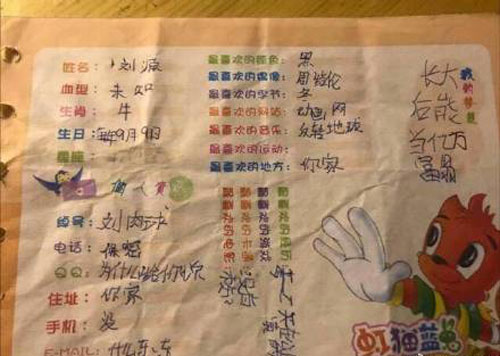 姓名：刘源
血型：未知
生肖：牛
生日：每年9月9日
星座：
个人资
绰号：刘肉球
电话：保密
QQ：为什么给你
住址：你家
手机：没
E-MAIL：什么东东
最喜欢的颜色：黑
最喜欢的偶像：周特伦
最喜欢的季节：冬
最喜欢的网站：动画网
最喜欢的音乐：反转地球
最喜欢的运动：
最喜欢的地方：你家
最喜欢的游戏
最喜欢的卡通
最喜欢的电影
没有
我的梦想
长大
后能
当亿万
富翁
虹猫蓝